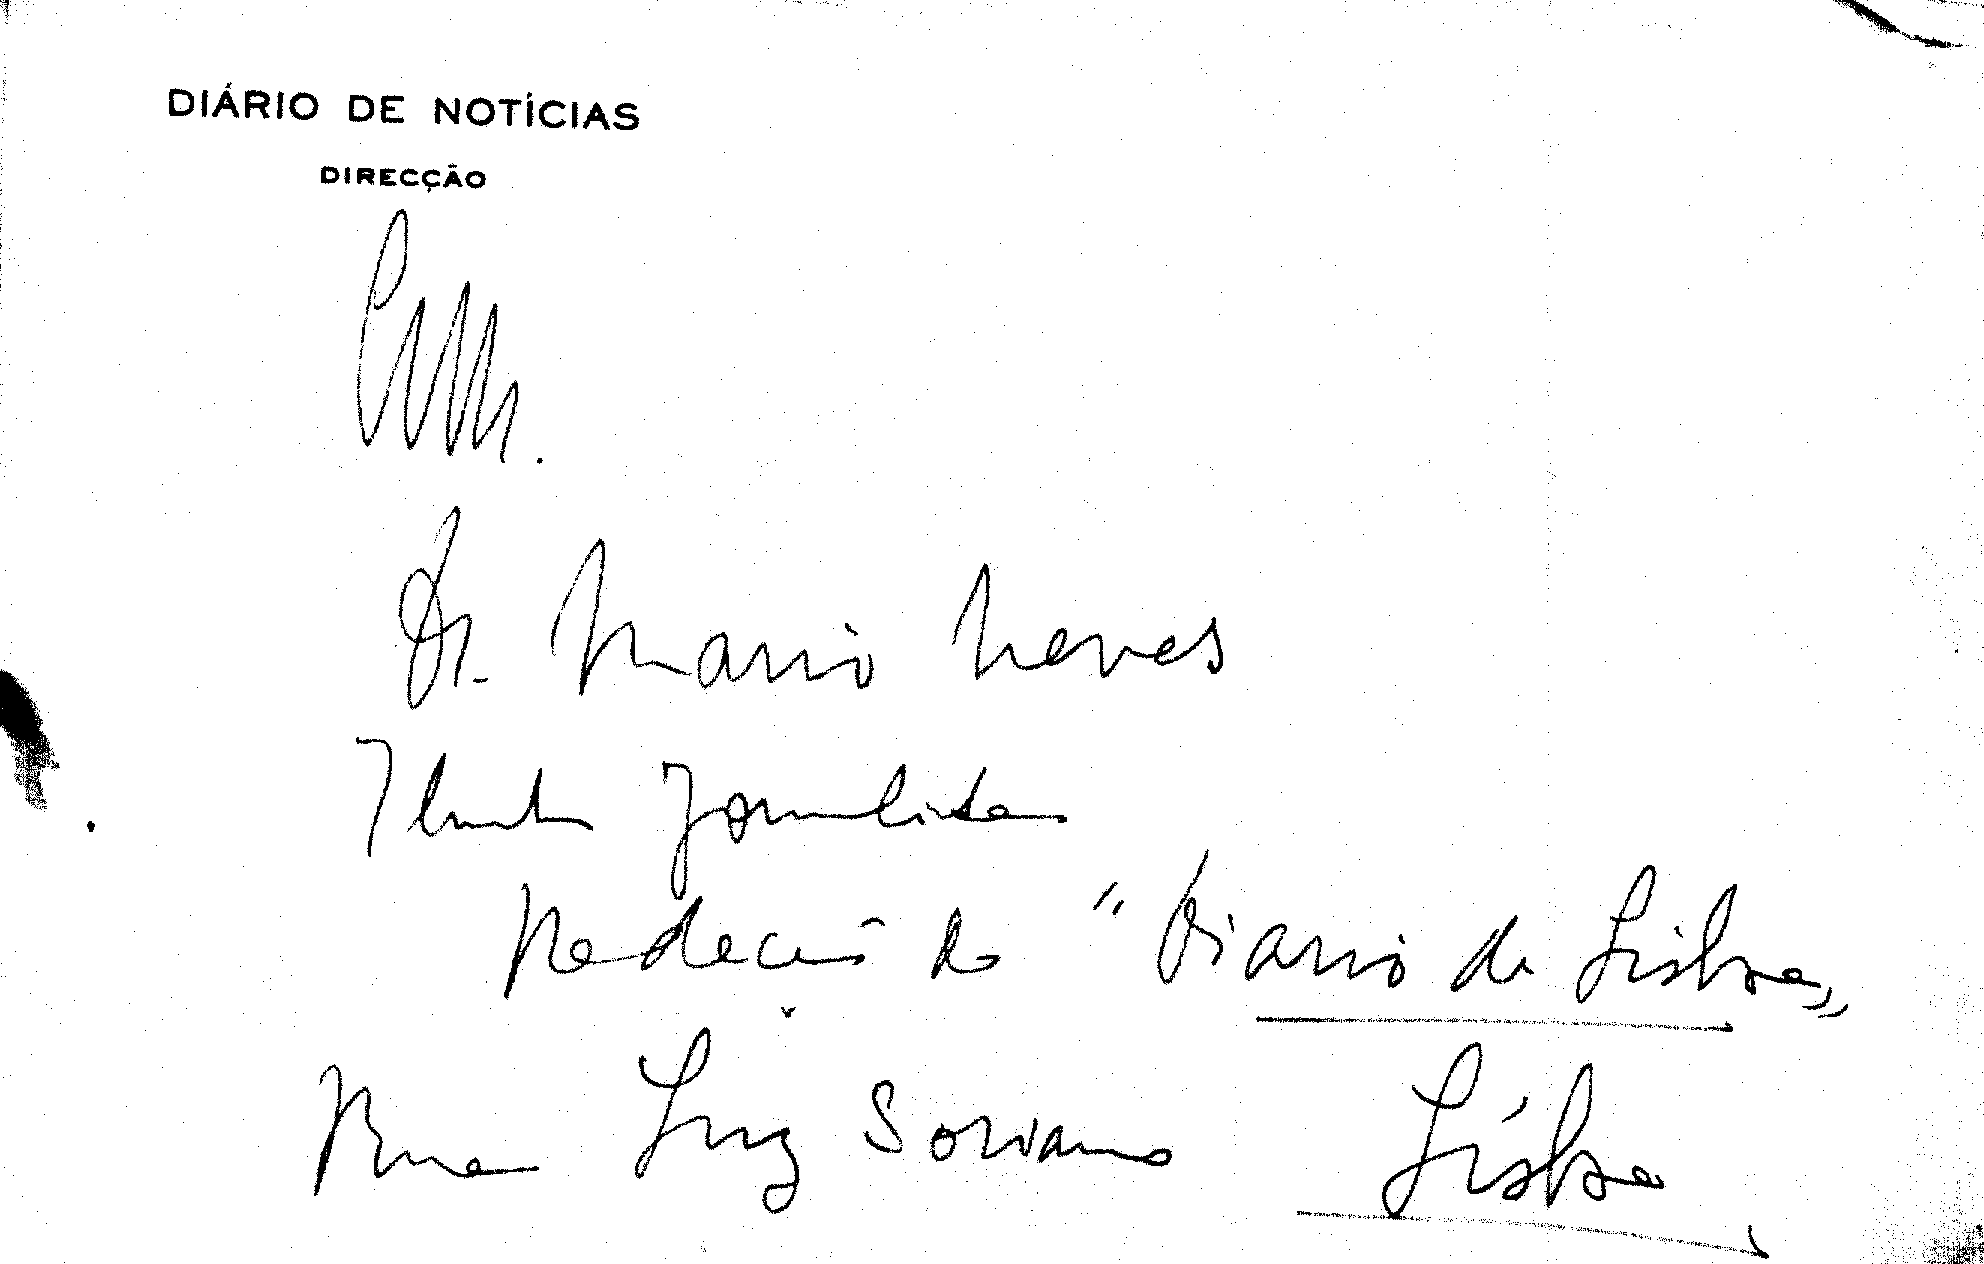 DIÁRIO DE NOTÍCIAS
DIRECÇÃO
Dr. Mario Neves
Ilustre Jornalista
Redacção do "Diario de Lisboa"
Rua Luz Soriano Lisboa